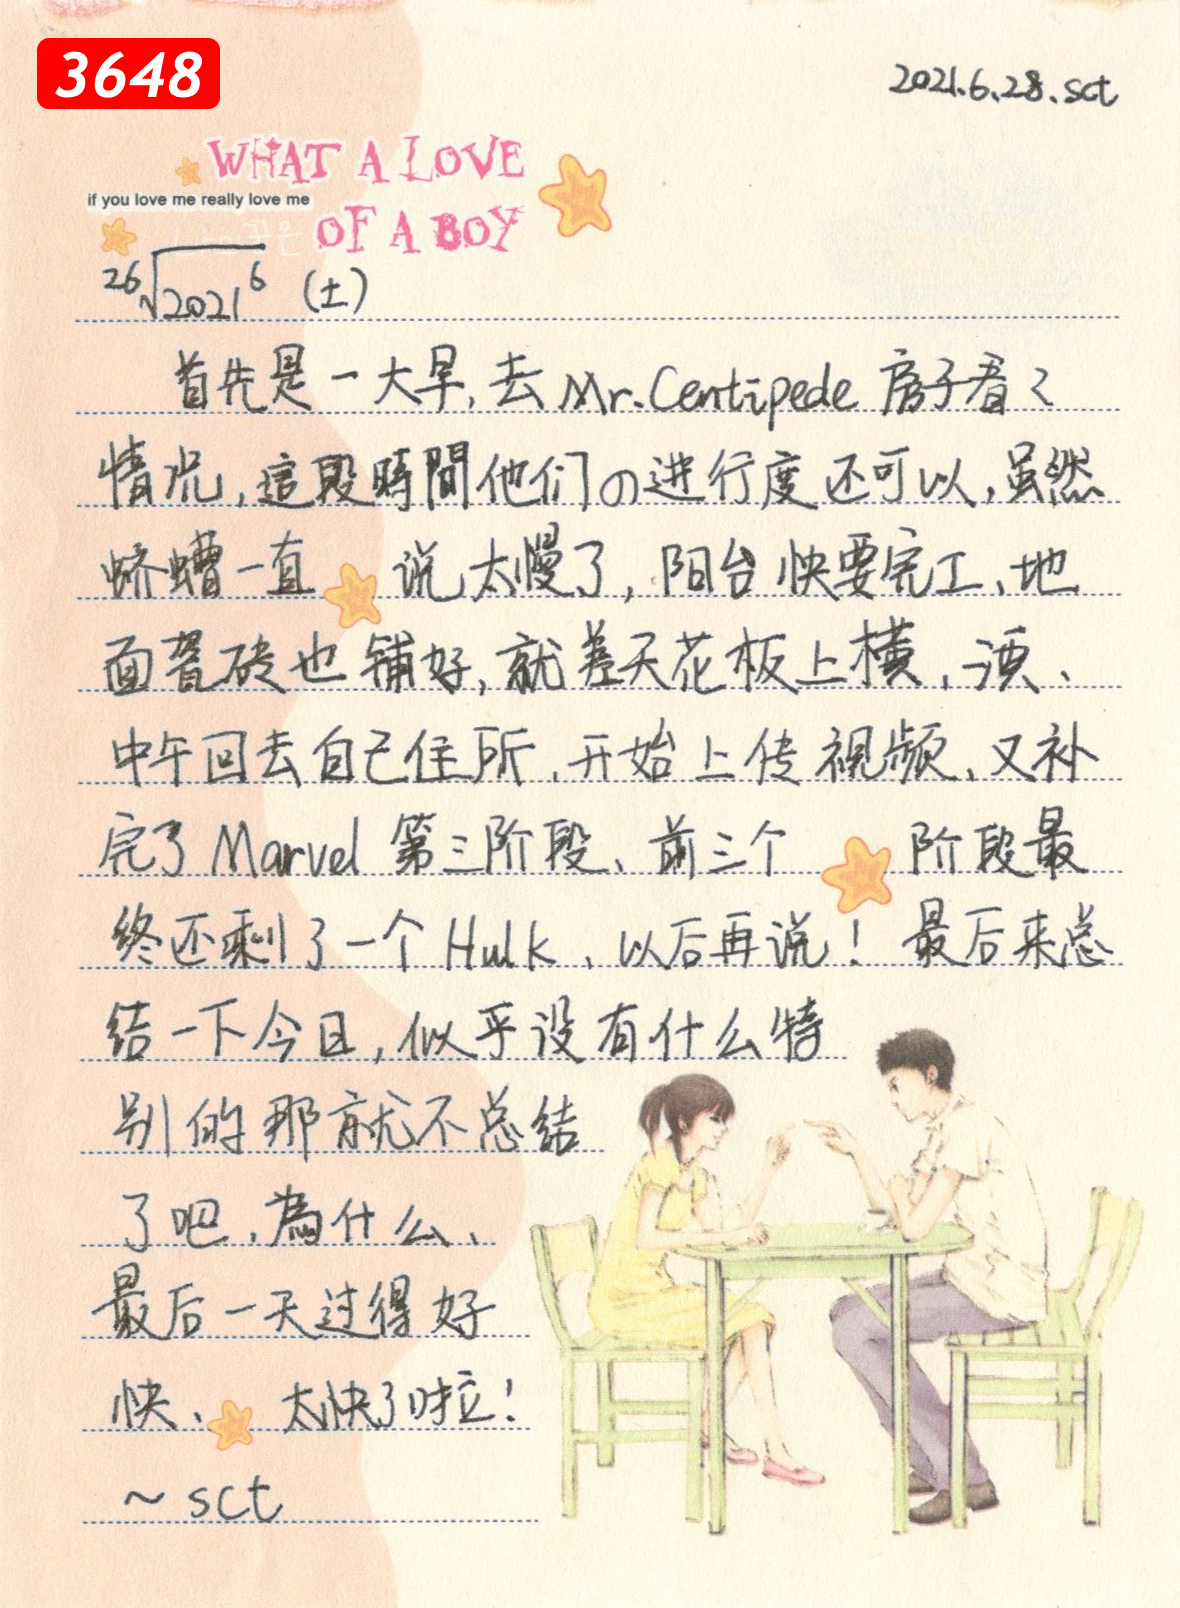 3648
2021.6.28.sct
WHAT A LOVE
if you love me really love me
OF A BOY
26√2021^6 (土)
首先是一大早,去Mr.Centipede房子看々
情况,這段時間他们の进行度还可以,虽然
蛴螬一直说太慢了,阳台快要完工、地
面瓷砖也铺好,就差天花板上横、
中午回去自己住所、开始上传視频、又补
完了Marvel第三阶段、前三个阶段最
终还剩了一个Hulk、以后再说!最后来总
结一下今日,似乎没有什么特
别的那就不总结
了吧、為什么、
最后一天过得好
快、太快了啦!
~sct